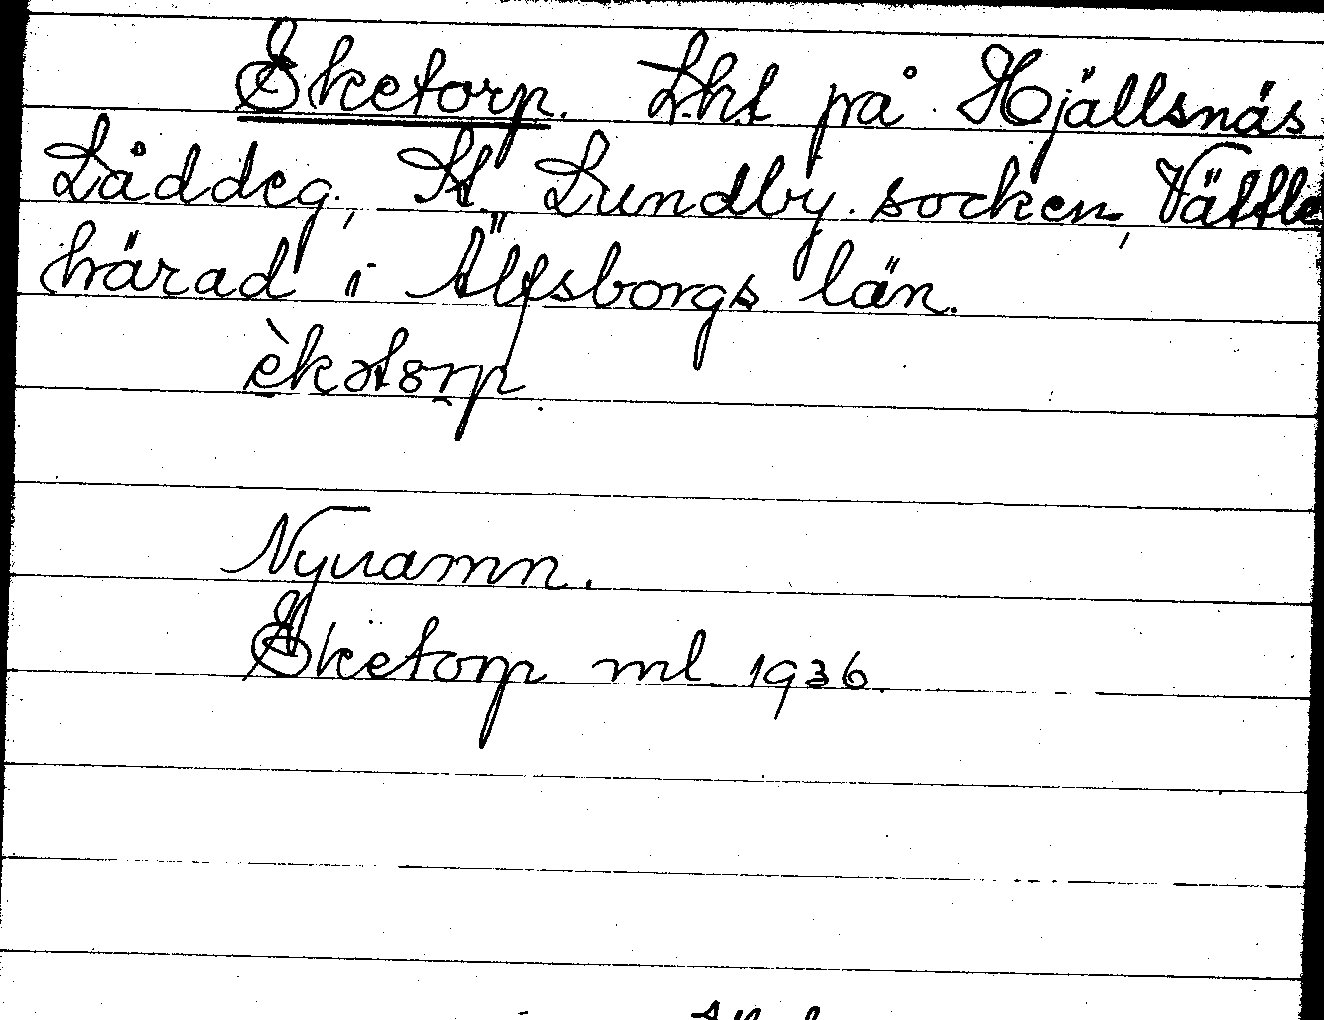 Eketorp. Lht på Hjällsnäs
Låddeg, St. Lundby socken, Vättle
härad i Älfsborgs län.
èkətorp.
Nynamn.
Eketorp ml 1936